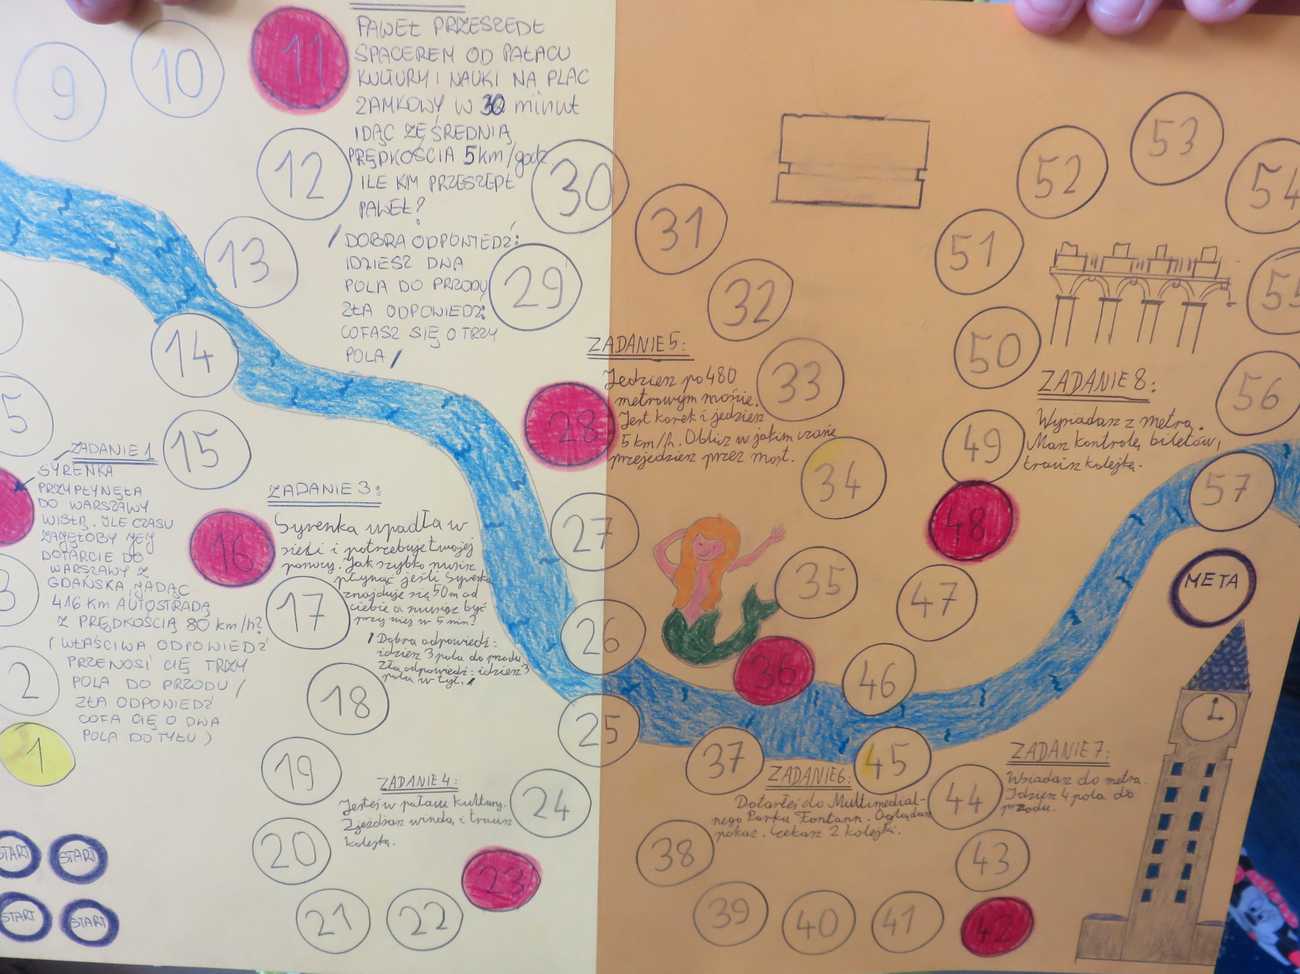 PAWEŁ PRZESZEDŁ
SPACEREM OD PAŁACU
KULTURY I NAUKI NA PLAC
ZAMKOWY W 30 minut
IDĄC ZE ŚREDNIĄ
PRĘDKOŚCIĄ 5km/godz
ILE KM PRZESZEDŁ
PAWEŁ?
/DOBRA ODPOWIEDŹ:
IDZIESZ DWA
POLA DO PRZODU
ZŁA ODPOWIEDŹ:
COFASZ SIĘ O TRZY
POLA/
ZADANIE 1
SYRENKA
PRZYPŁYNĘŁA
DO WARSZAWY
WISŁĄ. ILE CZASU
ZAJĘŁOBY JEJ
DOTARCIE DO
WARSZAWY Z
GDAŃSKA JADĄC
416 KM AUTOSTRADĄ
Z PRĘDKOŚCIĄ 80 km/h?
(WŁAŚCIWA ODPOWIEDŹ
PRZENOSI CIĘ TRZY
POLA DO PRZODU/
ZŁA ODPOWIEDŹ
COFA CIĘ O DWA
POLA DO TYŁU)
ZADANIE 3:
Syrenka wpadła w
sieci i potrzebuje twojej
pomocy. Jak szybko musisz
płynąć jeśli Syrenka
znajduje się 50m od
ciebie a musisz być
przy niej w 5 min?
/Dobra odpowiedź:
idziesz 3 pola do przodu
Zła odpowiedź: idziesz 3
pola w tył./
ZADANIE 4:
Jesteś w pałacu kultury.
Zjeżdżasz windą i tracisz
kolejkę.
ZADANIE 5:
Jedziesz po 480
metrowym moście.
Jest korek i jedziesz
5 km/h. Oblicz w jakim czasie
przejedziesz przez most.
ZADANIE 6:
Dotarłeś do Multimedial-
nego Parku Fontann. Oglądasz
pokaz. Czekasz 2 kolejki.
ZADANIE 7:
Wsiadasz do metra.
Idziesz 4 pola do
przodu.
ZADANIE 8:
Wysiadasz z metra.
Masz kontrolę biletów,
tracisz kolejkę.
START
START
START
START
1
2
3
5
9
10
11
12
13
14
15
16
17
18
19
20
21
22
23
24
25
26
27
28
29
30
31
32
33
34
35
36
37
38
39
40
41
42
43
44
45
46
47
48
49
50
51
52
53
54
55
56
57
META